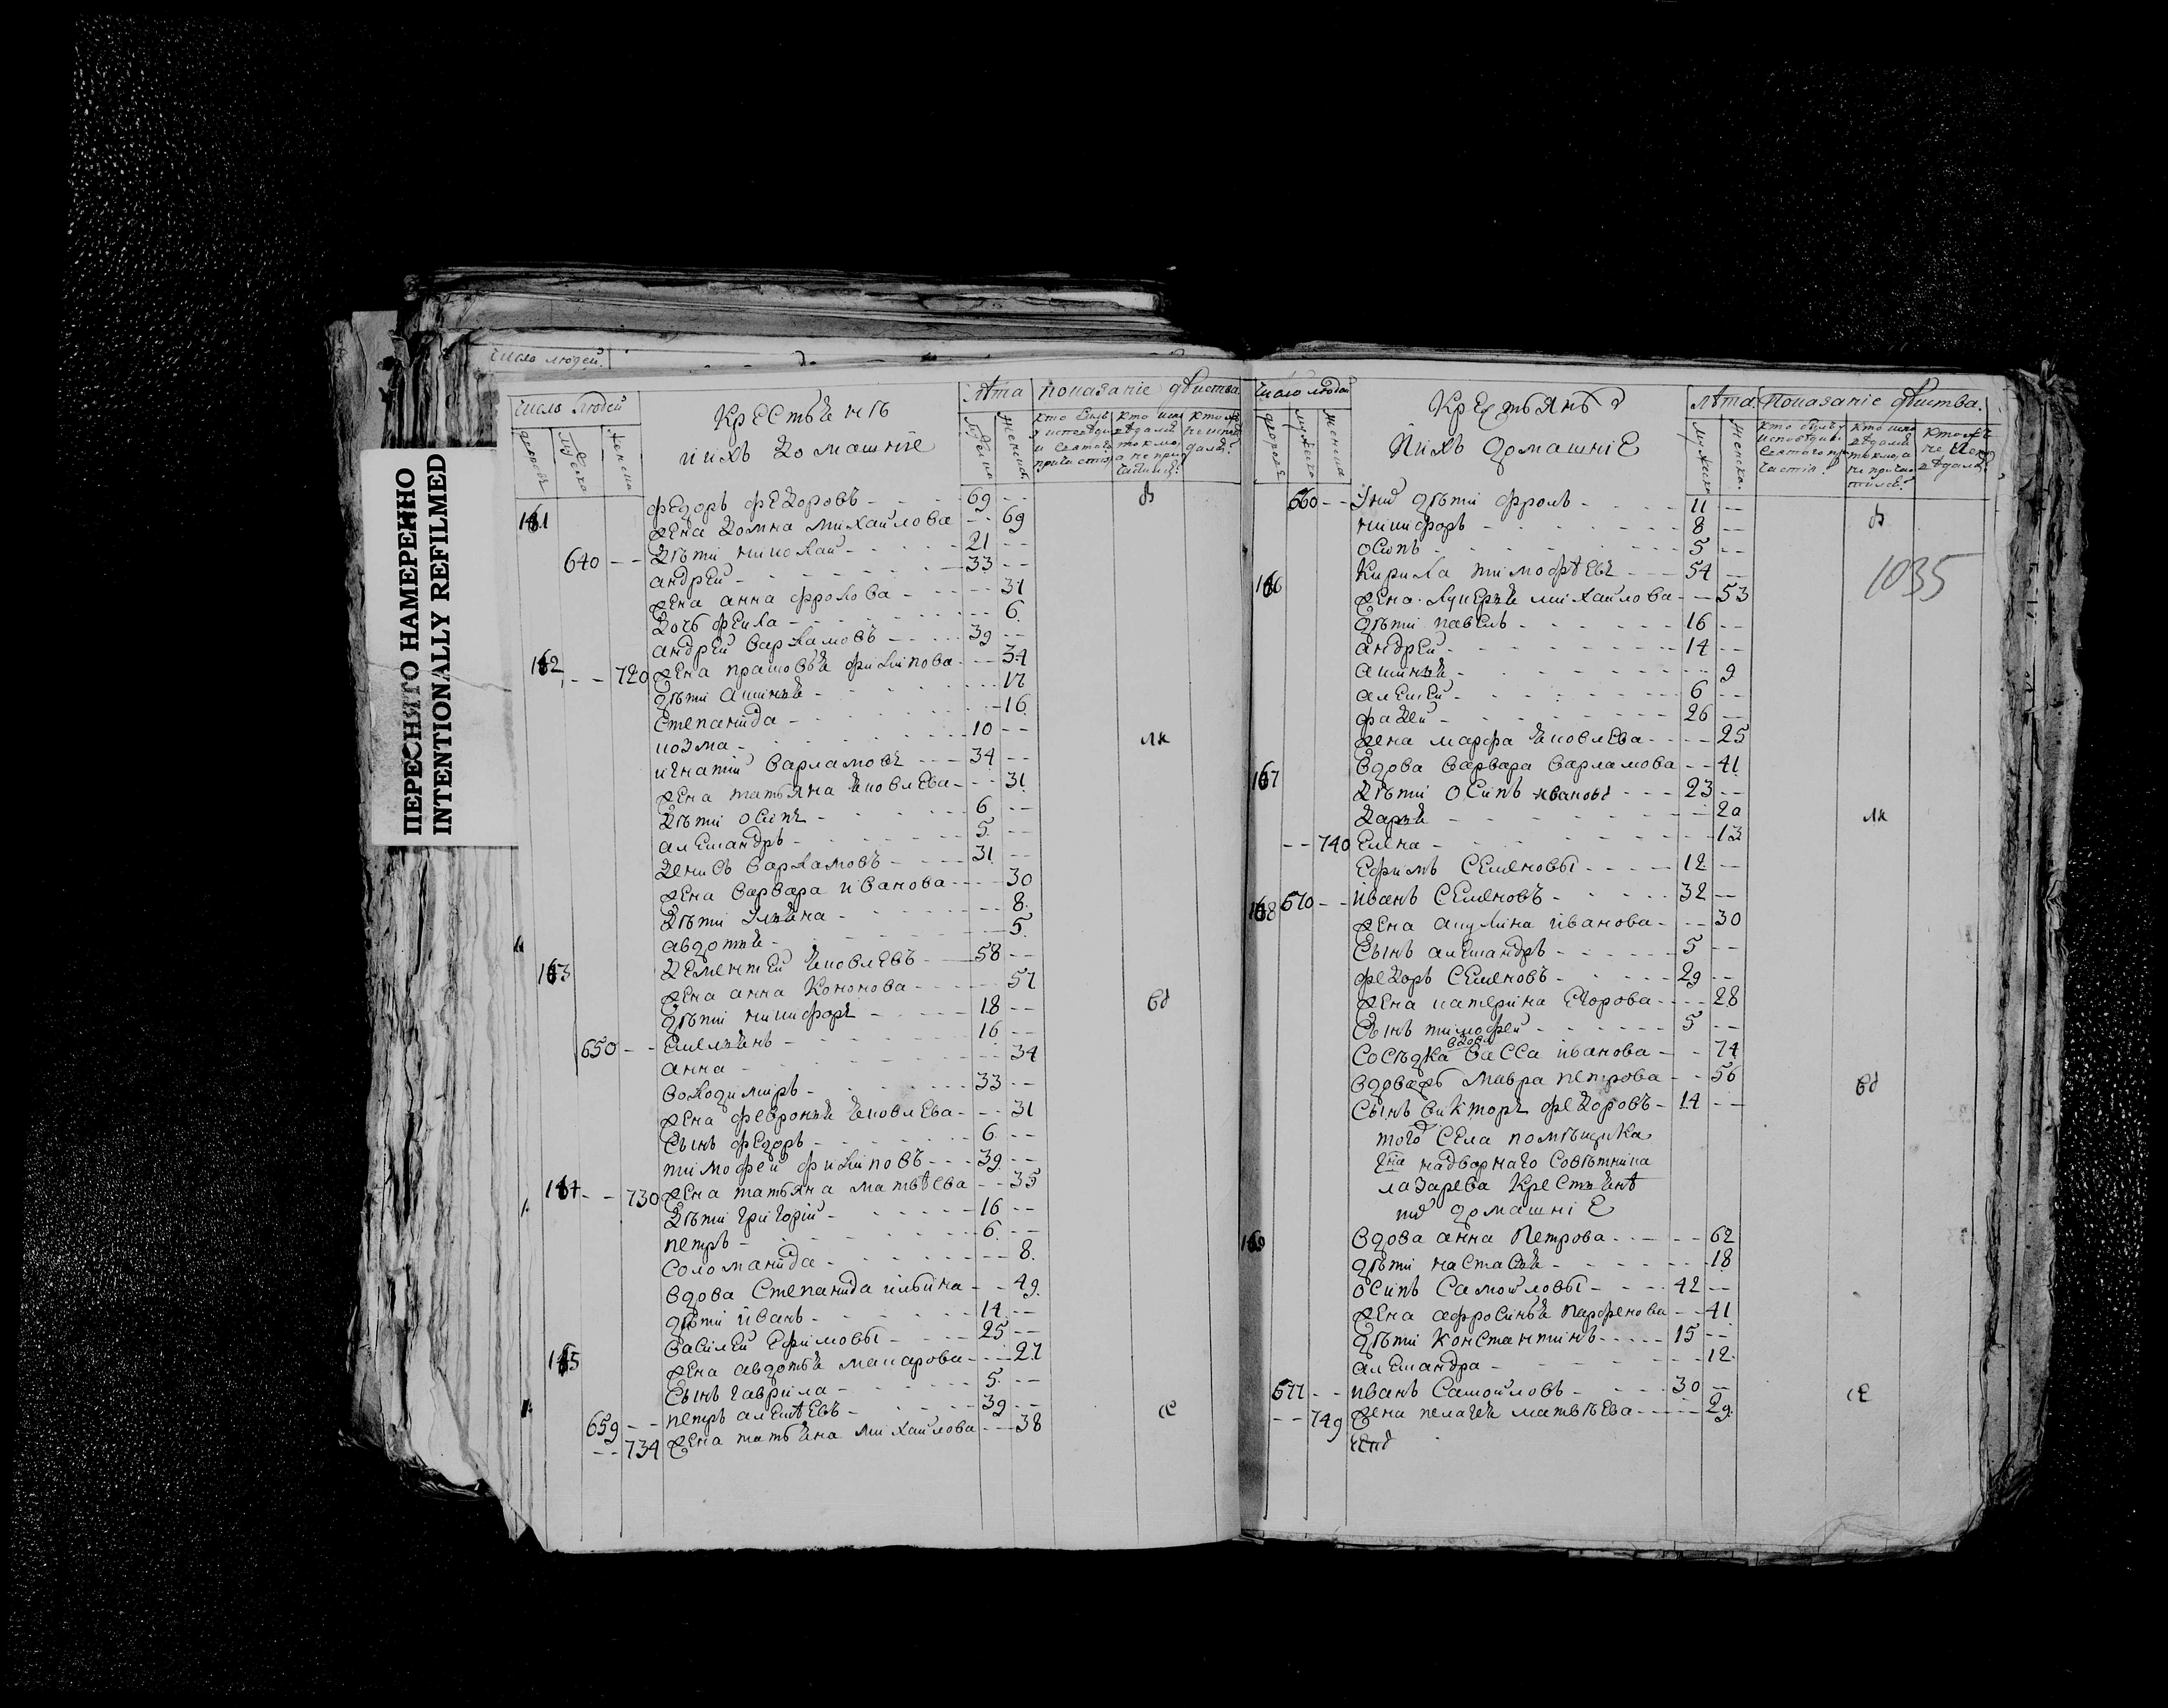 ПЕРЕСНЯТО НАМЕРЕННО
INTENTIONALLY REFILMED
число людей
число людей
Крестьянъ
ийхъ домашнïе
лѣта
показанïе
дворовъ
мужеска
женска
Федоръ Федоровъ - 69
161 жена Домна Михайлова - 69
640 Дѣти николай - 21
андрей - 33
жена анна фролова - 31
дочь Фекла - 6
андрей Варламовъ - 39
162 720 жена прасковья филипова - 34
дѣти аксинья - 17
степанида - 16
козма - 10
игнатïй Варламовъ - 34
жена татьяна яковлева - 31
Дѣти осипъ - 6
александръ - 5
Денисъ Варламовъ - 31
жена Варвара иванова - 30
Дѣти Ульяна - 8
авдотья - 5
163 Дементей яковлевъ - 58
жена анна Кононова - 57
дѣти никифоръ - 18
650 Емельянъ - 16
анна - 34
володимиръ - 33
жена февронья яковлева - 31
сынъ федоръ - 6
тимофей филиповъ - 39
164 730 жена татьяна матвѣева - 35
Дѣти григорïй - 16
петръ - 6
соломанида - 8
вдова Степанида ильина - 49
дѣти иванъ - 14
василей Ефимовы - 25
165 жена авдотья макарова - 27
сынъ гаврила - 5
659 петръ алексѣевъ - 39
734 жена татьяна михайлова - 38
число людей
Крестьянъ
ийхъ домашнïе
лѣта
показанïе
мужеска
женска
660 дѣти фролъ - 11
никифоръ - 8
осипъ - 5
1035
166 Кирила тимофѣевъ - 54
жена Лукерья михайлова - 53
дѣти павелъ - 16
андрей - 14
аксинья - 9
алексей - 6
фадей - 26
жена марфа яковлева - 25
167 вдова варвара варламова - 41
Дѣти осипъ ивановъ - 23
Дарья - 20
740 Елена - 13
Ефимъ Семеновы - 12
168 670 иванъ Семеновъ - 32
жена акулина иванова - 30
сынъ александръ - 5
федоръ Семеновъ - 29
жена катерина Егорова - 28
сынъ тимофей - 5
сосѣдка вдова васса иванова - 74
мавра петрова - 56
сынъ викторъ федоровъ - 14
того села помѣщика
надворнаго совѣтника
лазарева крестьянѣ
домашнïе
169 вдова анна Петрова - 62
дѣти настасья - 18
осипъ Самойловы - 42
жена афросинья парфенова - 41
дѣти константинъ - 15
александра - 12
677 иванъ Самойловъ - 30
749 жена пелагея матвѣева - 29